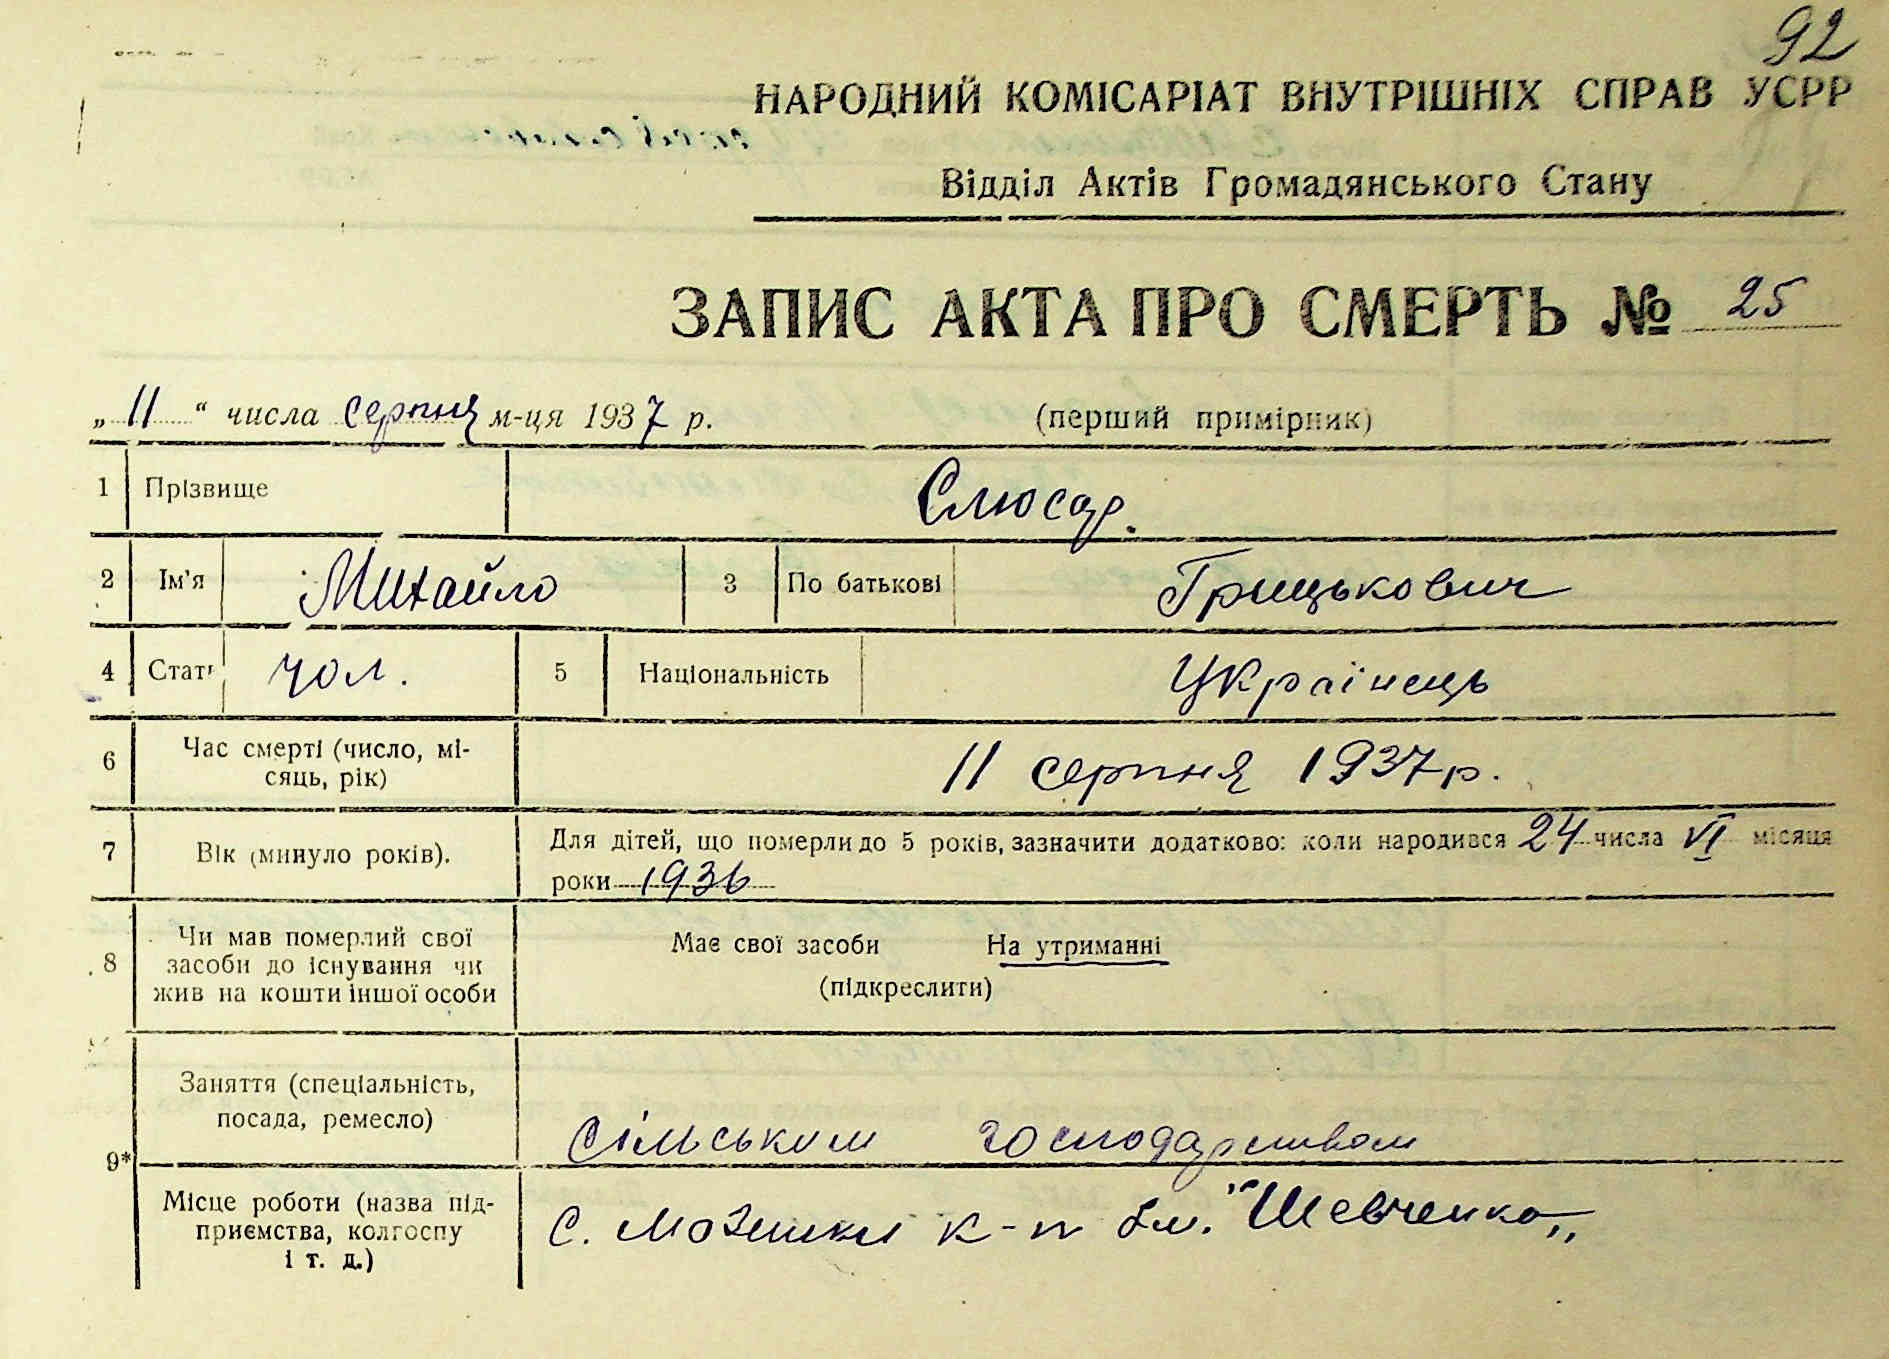 92
НАРОДНИЙ КОМІСАРІАТ ВНУТРІШНІХ СПРАВ УСРР
Відділ Актів Громадянського Стану
ЗАПИС АКТА ПРО СМЕРТЬ № 25
„ 11 “ числа серпня м-ця 1937 р. (перший примірник)
1 Прізвище Слюсар.
2 Ім'я Михайло 3 По батькові Грицькович
4 Стать чол. 5 Національність Українець
6 Час смерті (число, мі-
сяць, рік) 11 серпня 1937 р.
7 Вік (минуло років). Для дітей, що померли до 5 років, зазначити додатково: коли народився 24 числа VI місяця
роки 1936
8 Чи мав померлий свої
засоби до існування чи
жив на кошти іншої особи
Має свої засоби На утриманні
(підкреслити)
9* Заняття (спеціальність,
посада, ремесло) Сільським господарством
Місце роботи (назва під-
приємства, колгоспу
і т. д.)
с. к-п ім. "Шевченко„